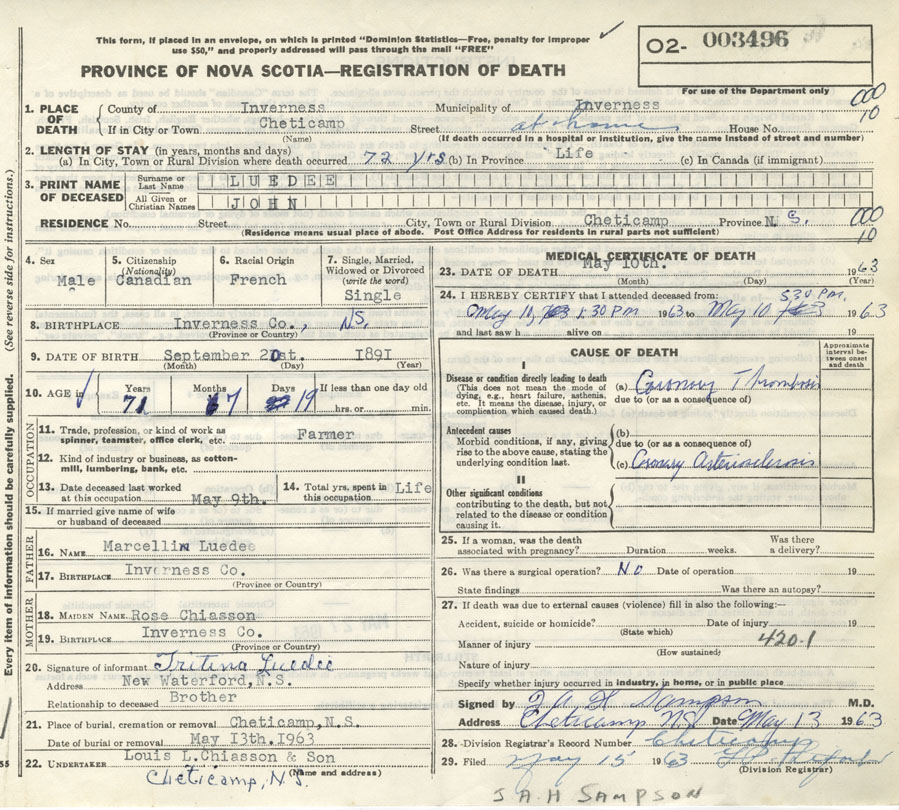 This form, if placed in an envelope, on which is printed "Dominion Statistics—Free, penalty for improper
use $50," and properly addressed will pass through the mail "FREE"
O2- 003496
PROVINCE OF NOVA SCOTIA—REGISTRATION OF DEATH
For use of the Department only
1. PLACE OF DEATH County of Inverness Municipality of Inverness
If in City or Town Cheticamp Street at home House No.
(Name) (If death occurred in a hospital or institution, give the name instead of street and number)
000
10
2. LENGTH OF STAY (in years, months and days)
(a) In City, Town or Rural Division where death occurred 72 yrs (b) In Province Life (c) In Canada (if immigrant)
3. PRINT NAME OF DECEASED Surname or Last Name LUEDEE
All Given or Christian Names JOHN
RESIDENCE No. Street City, Town or Rural Division Cheticamp Province N. S.
(Residence means usual place of abode. Post Office Address for residents in rural parts not sufficient)
000
10
4. Sex Male
5. Citizenship (Nationality) Canadian
6. Racial Origin French
7. Single, Married, Widowed or Divorced (write the word) Single
8. BIRTHPLACE Inverness Co., NS.
(Province or Country)
9. DATE OF BIRTH September 2 st. I89I
(Month) (Day) (Year)
10. AGE in Years 71 Months 7 Days 19 If less than one day old
hrs. or min.
OCCUPATION
11. Trade, profession, or kind of work as spinner, teamster, office clerk, etc. Farmer
12. Kind of industry or business, as cotton-mill, lumbering, bank, etc.
13. Date deceased last worked at this occupation May 9th.
14. Total yrs. spent in this occupation Life
15. If married give name of wife or husband of deceased
FATHER
16. NAME Marcellin Luedee
17. BIRTHPLACE Inverness Co.
(Province or Country)
MOTHER
18. MAIDEN NAME Rose Chiasson
19. BIRTHPLACE Inverness Co.
(Province or Country)
20. Signature of informant Luedee
Address New Waterford,N.S.
Relationship to deceased Brother
21. Place of burial, cremation or removal Cheticamp,N.S.
Date of burial or removal May I3th.1963
22. UNDERTAKER Louis L.Chiasson & Son
(Name and address)
Cheticamp, N.S.
MEDICAL CERTIFICATE OF DEATH
23. DATE OF DEATH May 10th. 1963
(Month) (Day) (Year)
24. I HEREBY CERTIFY that I attended deceased from:
May 10, 1:30 PM 1963 to May 10 5:30 P.M. 1963
and last saw h alive on 19
CAUSE OF DEATH
Approximate interval between onset and death
I
Disease or condition directly leading to death
(This does not mean the mode of dying, e.g., heart failure, asthenia, etc. It means the disease, injury, or complication which caused death.)
(a) Coronary Thrombosis
due to (or as a consequence of)
Antecedent causes
Morbid conditions, if any, giving rise to the above cause, stating the underlying condition last.
(b)
due to (or as a consequence of)
(c) Coronary Arteriosclerosis
II
Other significant conditions
contributing to the death, but not related to the disease or condition causing it.
25. If a woman, was the death associated with pregnancy? Duration weeks. Was there a delivery?
26. Was there a surgical operation? No Date of operation 19
State findings Was there an autopsy?
27. If death was due to external causes (violence) fill in also the following:—
Accident, suicide or homicide? Date of injury 19
(State which)
Manner of injury 420.1
(How sustained)
Nature of injury
Specify whether injury occurred in industry, in home, or in public place
Signed by J A H Sampson M.D.
Address Cheticamp NS Date May 13 1963
28. Division Registrar's Record Number Cheticamp
29. Filed May 15 1963
(Division Registrar)
J A.H SAMPSON
Every item of information should be carefully supplied. (See reverse side for instructions.)